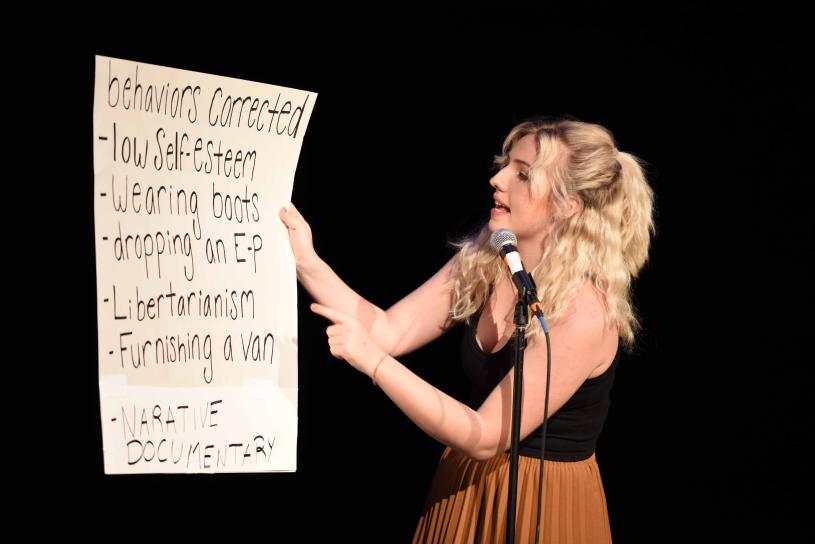 behaviors corrected
-low Self-esteem
-Wearing boots
-dropping an E-P
-Libertarianism
-Furnishing a van
-NARATIVE
DOCUMENTARY